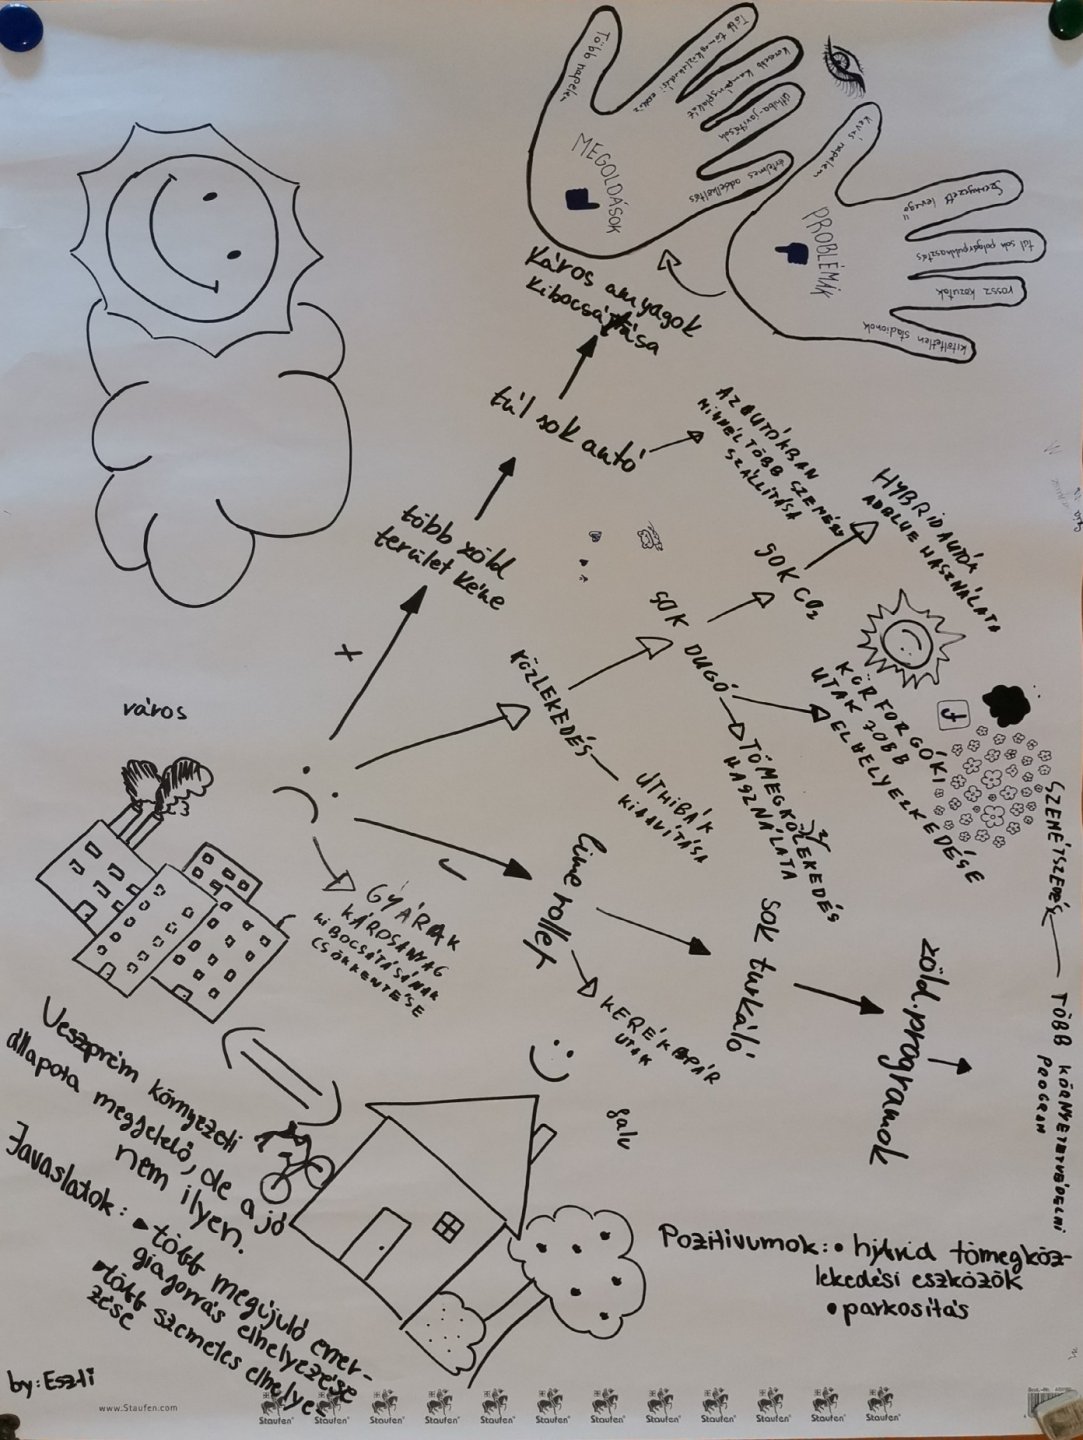 Több napelem
Több tömegközlekedési eszköz
Kevesebb kampányplakát
Úthiba-javítások
értelmes adóelköltés
MEGOLDÁSOK
Kevés napelem
Szennyezett levegő
túl sok polgárpukkasztás
rossz közutak
kitöltetlen stadionok
PROBLÉMÁK
káros anyagok
kibocsátása
túl sok autó
AZ AUTÓKBAN
MINNÉL TÖBB SZEMÉLY
SZÁLLÍTÁSA
több zöld
terület kéne
HYBRID AUTÓK
ADBLUE HASZNÁLATA
SOK CO2
SOK
DUGÓ
KÖZLEKEDÉS
KÖRFORGÓK
UTAK JOBB
ELHELYEZKEDÉSE
TÖMEGKÖZLEKEDÉS
HASZNÁLATA
ÚTHIBÁK
KIJAVÍTÁSA
város
GYÁRAK
KÁROSANYAG
KIBOCSÁTÁSÁNAK
CSÖKKENTÉSE
lime roller
KERÉKPÁR
UTAK
sok turkáló
zöld.programok
SZEMÉTSZEDÉS
TÖBB KÖRNYEZETVÉDELMI
PROGRAM
falu
Veszprém környezeti
állapota megfelelő, de a jó
nem ilyen.
Javaslatok:
több megújuló ener-
giaforrás elhelyezése
több szemetes elhelye-
zése
Pozitívumok: • hibrid tömegköz-
lekedési eszközök
• parkosítás
by: Eszti
www.Staufen.com
Staufen Staufen Staufen Staufen Staufen Staufen Staufen Staufen Staufen Staufen Staufen Staufen